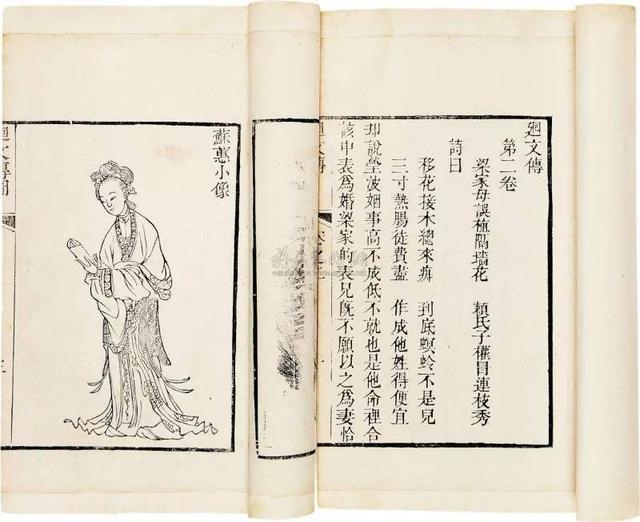 廻文傳
第二卷
梁家母誤植隔墻花　賴氏子權冒連枝秀
詩曰
移花接木總來痴　到底螟蛉不是兒
三寸熱腸徒費盡　作成他姓得便宜
却說瑩波姻事高不成低不就也是他命裡合
該中表爲婚梁家的表兄旣不願以之爲妻恰
廻文傳
蘇蕙小像